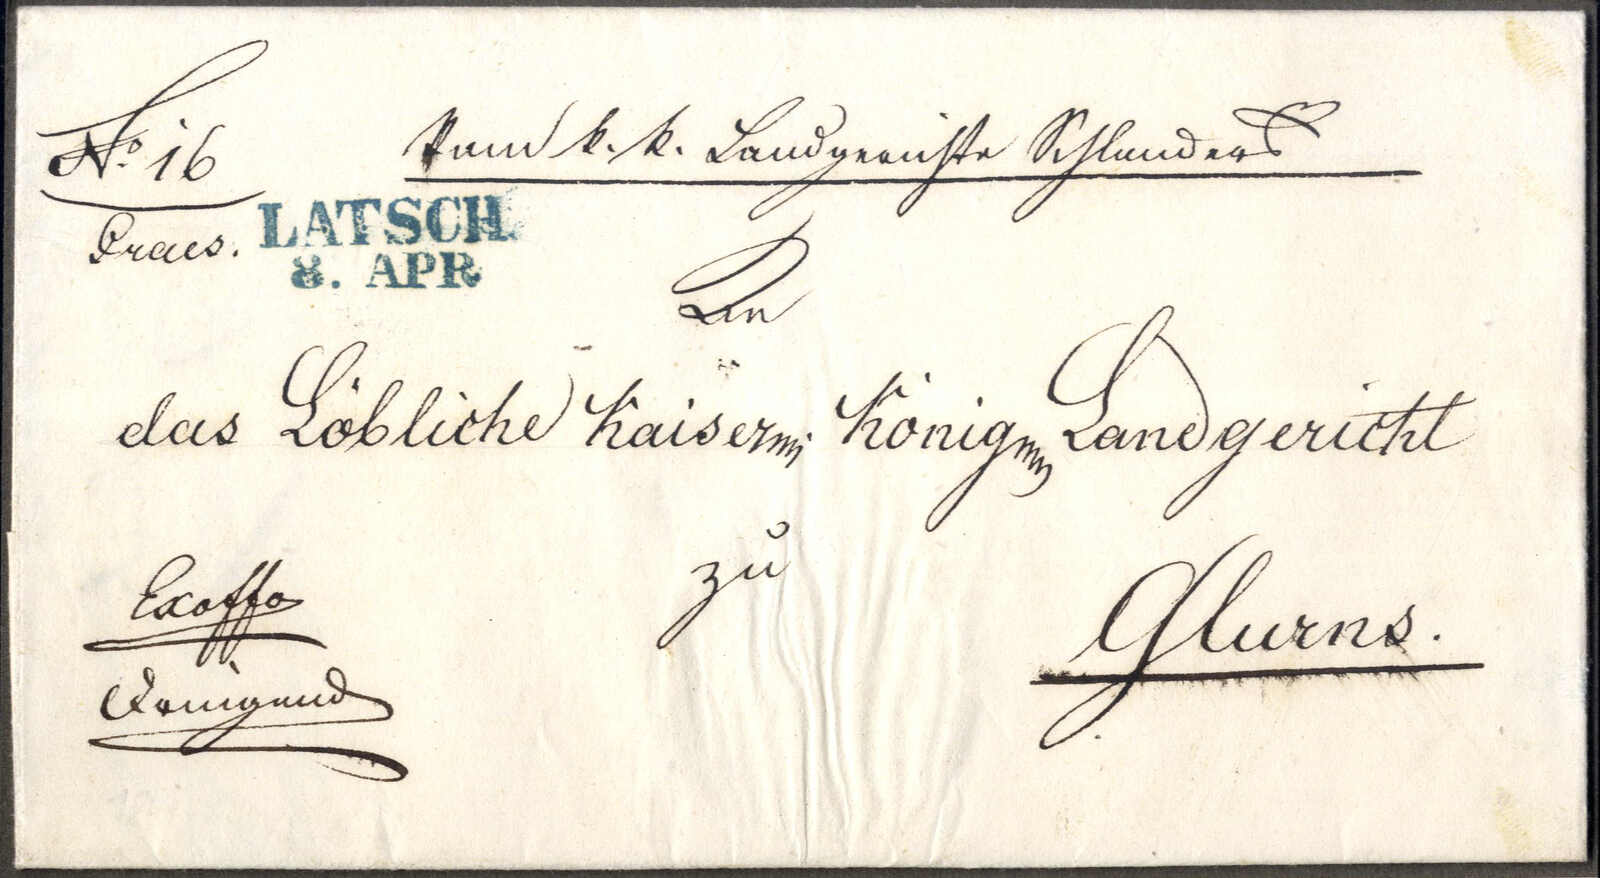 No. 16
Vom k. k. Landgerichte Schlanders
Praes.
LATSCH
8. APR
An
das Löbliche Kaiser König Landgericht
zu
Glurns.
Exoffo
Dringend